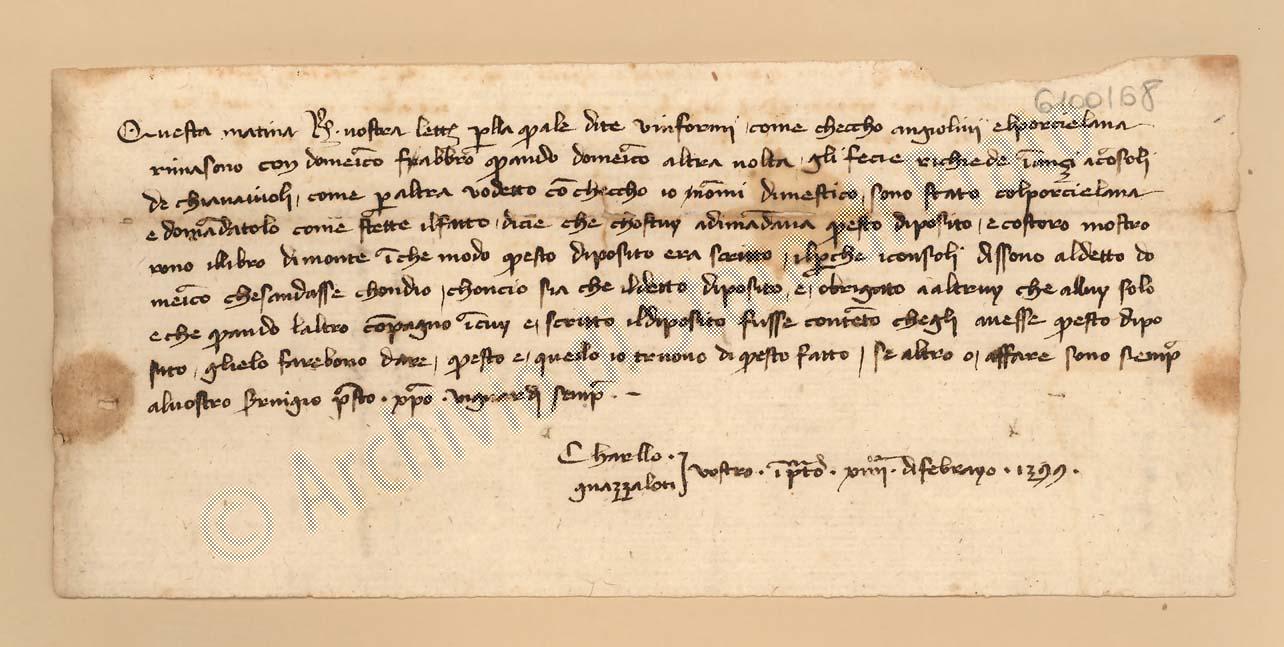 6100168
Questa matina Rx. vostra lettera p(er)lla quale dite vinformi come checcho angiolini elporcielana
rimasono con domenico fabbro quando domenico altra volta gli fecie richiede inanzi aconsoli
de chiavaiuoli come p(er) altra vodetto con checcho io dimestico sono stato colporcielana
e domandatolo come stette ilfatto dicie che chostuy adimandava questo diposito e costoro mostro
rono illibro dimonte inche modo questo diposito era scritto ilperche iconsoli dissono aldetto do
menico chesandasse chondio choncio sia che ildetto diposito e obrigato aaltruy che alluy solo
e che quando laltro compagno incuy e scritto ildiposito fusse contento chegli avesse questo dipo
sito glielo farebono dare questo e quello io truovo di questo fatto se altro o affare sono sempre
alvostro servigio presto xpo vi guardi sempre
Charllo
guazzaloti
vostro in prato xiiii di febrayo 1399
© Archivio di Stato di Prato